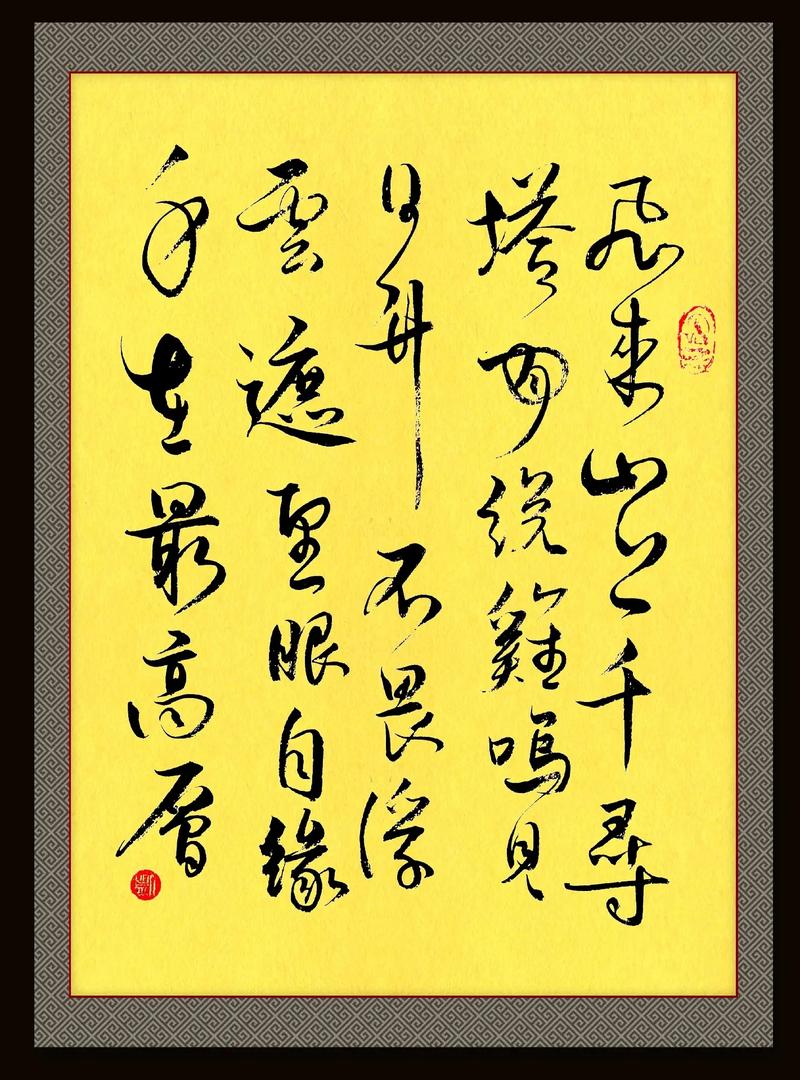 飛來山上千尋
塔聞說雞鳴見
日升不畏浮
雲遮望眼自緣
身在最高層